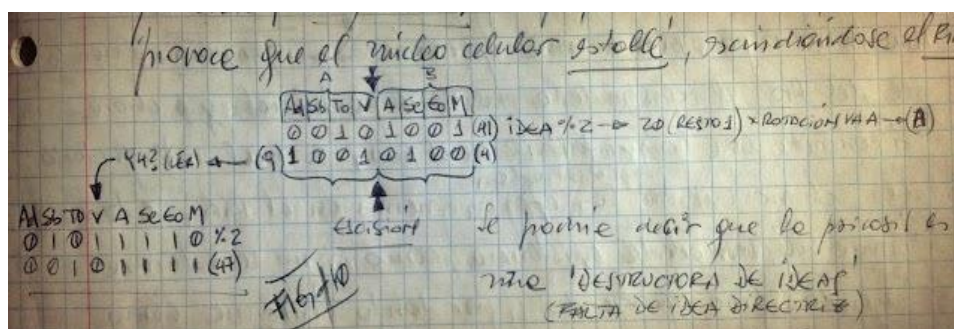 provoca que el núcleo celular estalle, escindiéndose el
A B
Ad Sb To V A Se Eo M
0 0 1 0 1 0 0 1 (41) iDEA %2 → 20 (RESTO 1) × ROTACIÓN VA A → (A)
← (9) 1 0 0 1 0 1 0 0 (4)
ESCISIÓN
Ad Sb To V A Se Eo M
0 1 0 1 1 1 1 0 %2
0 0 1 0 1 1 1 1 (47)
Se podría decir que la psicosis es
una 'DESTRUCTORA DE iDEAS'
(FALTA DE iDEA DIRECTRIZ)